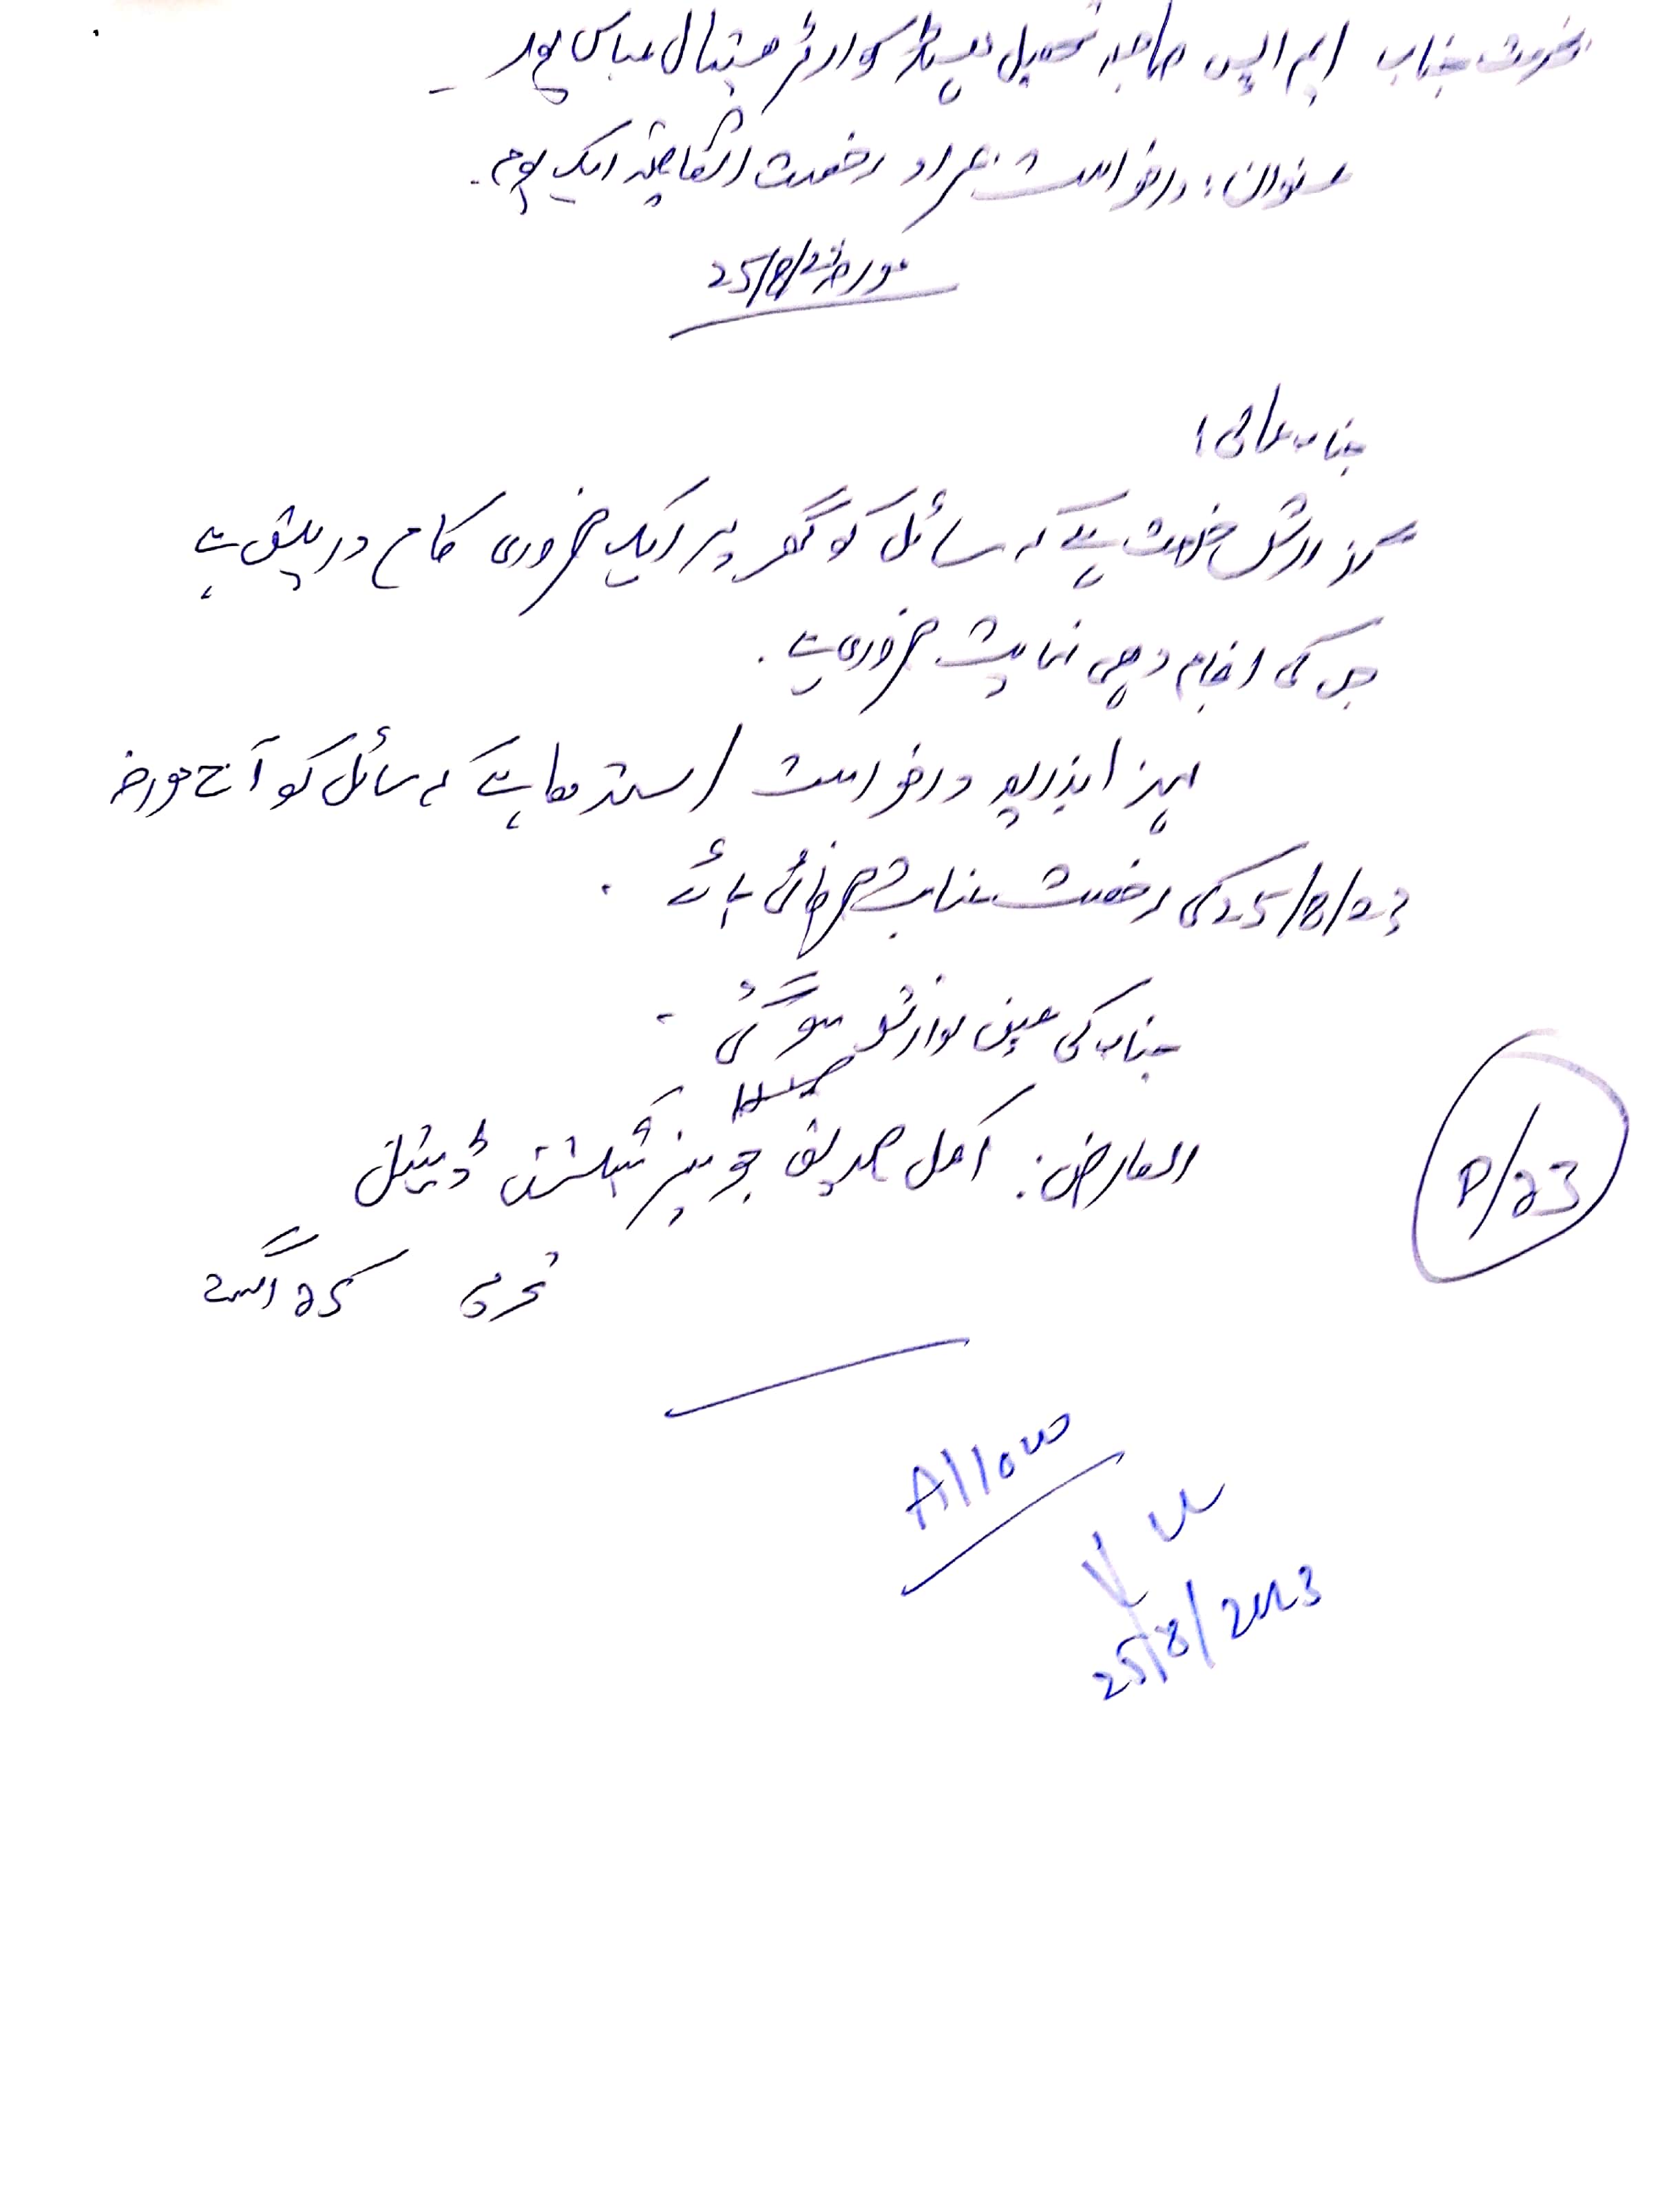 بخدمت جناب ایم ایس صاحب تحصیل ہیڈ کوارٹر ہسپتال عباس پور۔
عنوان: درخواست بمراد رخصت اتفاقیہ ایک یوم۔
مورخہ 25/8/23
جناب عالی!
گزارش خدمت ہے کہ سائل کو گھر پر ایک ضروری کام درپیش ہے
جس کی انجام دہی نہایت ضروری ہے۔
لہذا بذریعہ درخواست استدعا ہے کہ سائل کو آج مورخہ
25/8/23 کی رخصت عنایت فرمائی جائے۔
جناب کی عین نوازش ہو گی۔
العارض: اکمل صدیق جونیئر ٹیکنیشن ڈینٹل
تحریر 25 اگست
P/23
Allow
25/8/2023